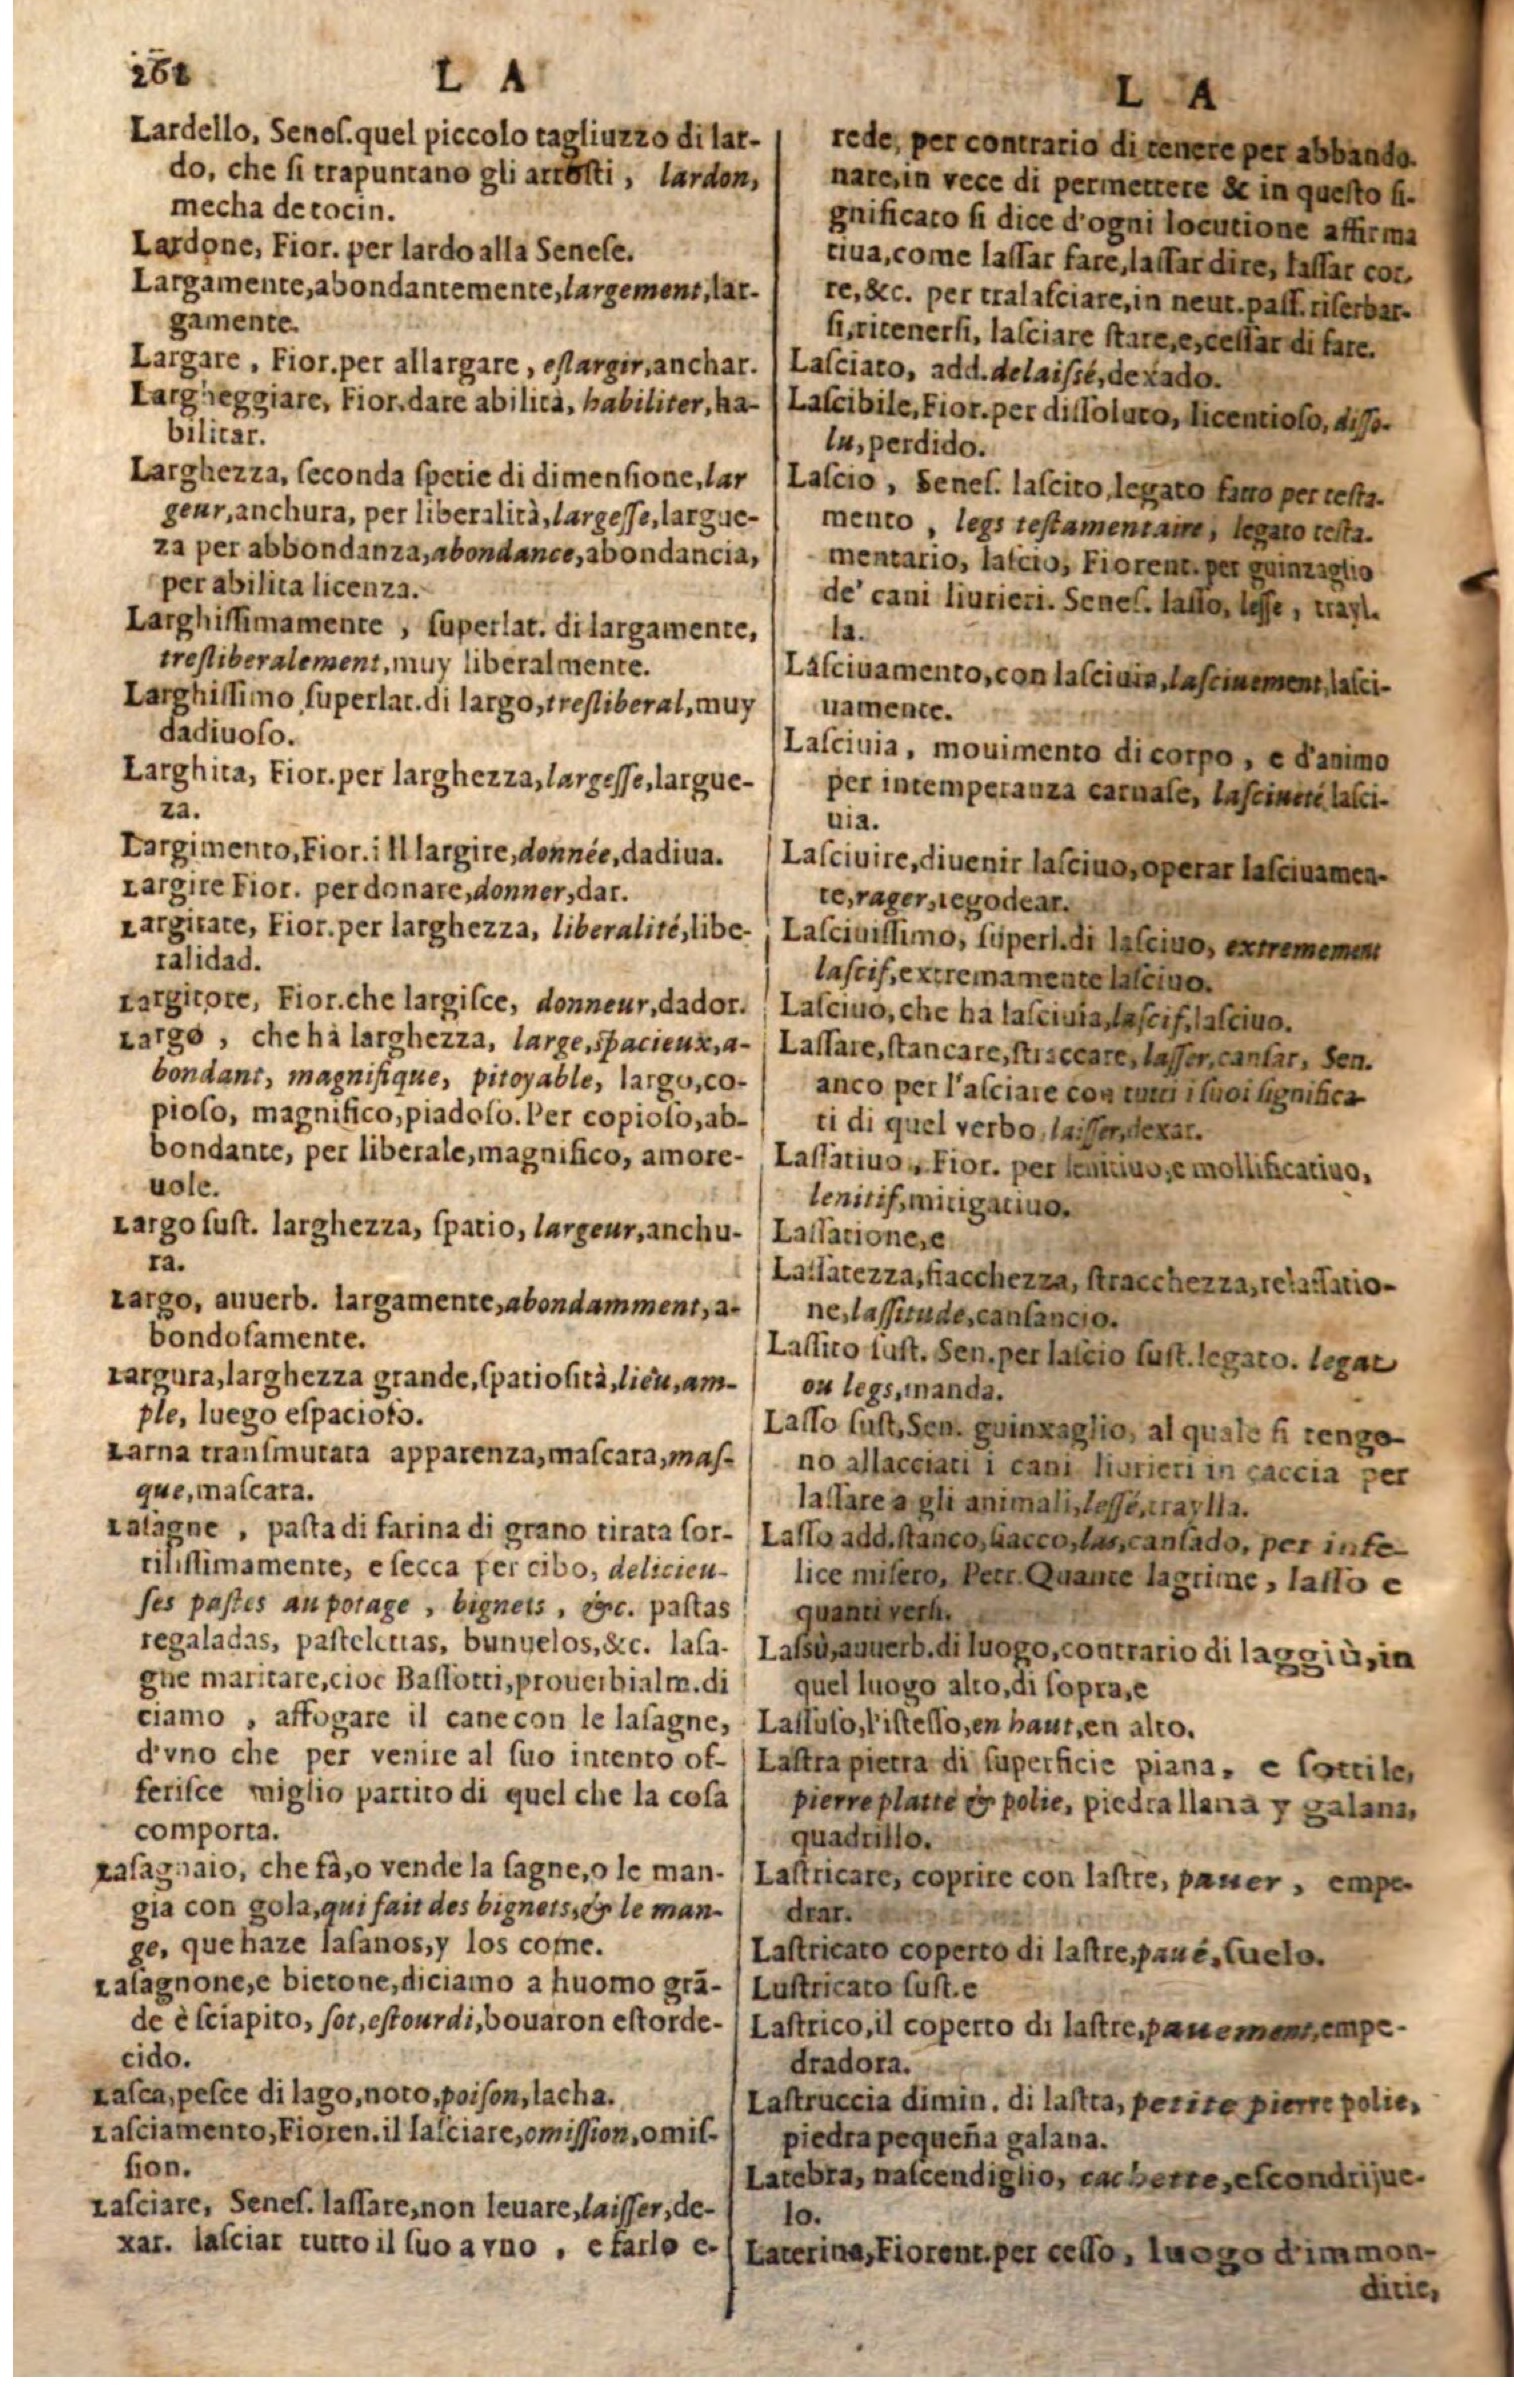 262
L A
Lardello, Seneſ. quel piccolo tagliuzzo di lar-
do, che ſi trapuntano gli arroſti, lardon,
mecha de tocin.
Lardone, Fior. per lardo alla Seneſe.
Largamente, abondantemente, largement, lar-
gamente.
Largare, Fior. per allargare, eſlargir, anchar.
Largheggiare, Fior. dare abilità, habiliter, ha-
bilitar.
Larghezza, ſeconda ſpetie di dimenſione, lar
geur, anchura, per liberalità, largeſſe, largue-
za per abbondanza, abondance, abondancia,
per abilita licenza.
Larghiſſimamente, ſuperlat. di largamente,
treſliberalement, muy liberalmente.
Larghiſſimo ſuperlat. di largo, treſliberal, muy
dadiuoſo.
Larghita, Fior. per larghezza, largeſſe, largue-
za.
Largimento, Fior. i ll largire, donnée, dadiua.
Largire Fior. per donare, donner, dar.
Largitate, Fior. per larghezza, liberalité, libe-
ralidad.
Largitore, Fior. che largiſce, donneur, dador.
Largo, che hà larghezza, large, ſpacieux, a-
bondant, magnifique, pitoyable, largo, co-
pioſo, magnifico, piadoſo. Per copioſo, ab-
bondante, per liberale, magnifico, amore-
uole.
Largo ſuſt. larghezza, ſpatio, largeur, anchu-
ra.
Largo, auuerb. largamente, abondamment, a-
bondoſamente.
Largura, larghezza grande, ſpatioſità, lieu, am-
ple, luego eſpacioſo.
Larna tranſmutata apparenza, maſcara, maſ-
que, maſcara.
Laſagne, paſta di farina di grano tirata ſot-
tiliſſimamente, e ſecca per cibo, delicieu-
ſes paſtes au potage, bignets, &c. paſtas
regaladas, paſtelettas, bunuelos, &c. laſa-
gne maritate, cioe Baſſotti, prouerbialm. di
ciamo, affogare il cane con le laſagne,
d'vno che per venire al ſuo intento of-
feriſce miglio partito di quel che la coſa
comporta.
Laſagnaio, che fà, o vende la ſagne, o le man-
gia con gola, qui fait des bignets, & le man-
ge, que haze laſanos, y los come.
Laſagnone, e bietone, diciamo a huomo grā-
de è ſciapito, ſot, eſtourdi, bouaron eſtorde-
cido.
Laſca, peſce di lago, noto, poiſon, lacha.
Laſciamento, Fioren. il laſciare, omiſſion, omiſ-
ſion.
Laſciare, Seneſ. laſſare, non leuare, laiſſer, de-
xar. laſciar tutto il ſuo a vno, e farlo e-
L A
rede, per contrario di tenere per abbando-
nare, in vece di permettere & in queſto ſi-
gnificato ſi dice d'ogni locutione affirma
tiua, come laſſar fare, laſſar dire, laſſar cor-
re, &c. per tralaſciare, in neut. paſſ. riſerbar-
ſi, ritenerſi, laſciare ſtare, e, ceſſar di fare.
Laſciato, add. delaiſſé, dexado.
Laſcibile, Fior. per diſſoluto, licentioſo, diſſo-
lu, perdido.
Laſcio, Seneſ. laſcito, legato fatto per teſta-
mento, legs teſtamentaire, legato teſta-
mentario, laſcio, Fiorent. per guinzaglio
de' cani liurieri. Seneſ. laſſo, leſſe, trayl-
la.
Laſciuamento, con laſciuia, laſciuement, laſci-
uamente.
Laſciuia, mouimento di corpo, e d'animo
per intemperanza carnale, laſciueté laſci-
uia.
Laſciuire, diuenir laſciuo, operar laſciuamen-
te, rager, regodear.
Laſciuiſſimo, ſuperl. di laſciuo, extremement
laſcif, extremamente laſciuo.
Laſciuo, che ha laſciuia, laſcif, laſciuo.
Laſſare, ſtancare, ſtraccare, laſſer, canſar, Sen.
anco per l'aſciare con tutti i ſuoi ſignifica
ti di quel verbo, laiſſer, dexar.
Laſſatiuo, Fior. per lenitiuo, e mollificatiuo,
lenitif, mitigatiuo.
Laſſatione, e
Laſſatezza, fiacchezza, ſtracchezza, relaſſatio-
ne, laſſitude, canſancio.
Laſſito ſuſt. Sen. per laſcio ſuſt. legato. legat
ou legs, manda.
Laſſo ſuſt. Sen. guinxaglio, al quale ſi tengo-
no allacciati i cani liurieri in caccia per
laſſare a gli animali, leſſe, traylla.
Laſſo add. ſtanco, fiacco, las, canſado, per infe-
lice miſero, Petr. Quante lagrime, laſſo e
quanti verſi.
Laſsù, auuerb. di luogo, contrario di laggiù, in
quel luogo alto, di ſopra, e
Laſſuſo, l'iſteſſo, en haut, en alto.
Laſtra pietra di ſuperficie piana, e ſottile,
pierre platte & polie, piedra llana y galana,
quadrillo.
Laſtricare, coprire con laſtre, pauer, empe-
drar.
Laſtricato coperto di laſtre, paué, ſuelo.
Luſtricato ſuſt. e
Laſtrico, il coperto di laſtre, pauement, empe-
dradora.
Laſtruccia dimin. di laſtra, petite pierre polie,
piedra pequeña galana.
Latebra, naſcendiglio, cachette, eſcondrijue-
lo.
Laterina, Fiorent. per ceſſo, luogo d'immon-
ditie,